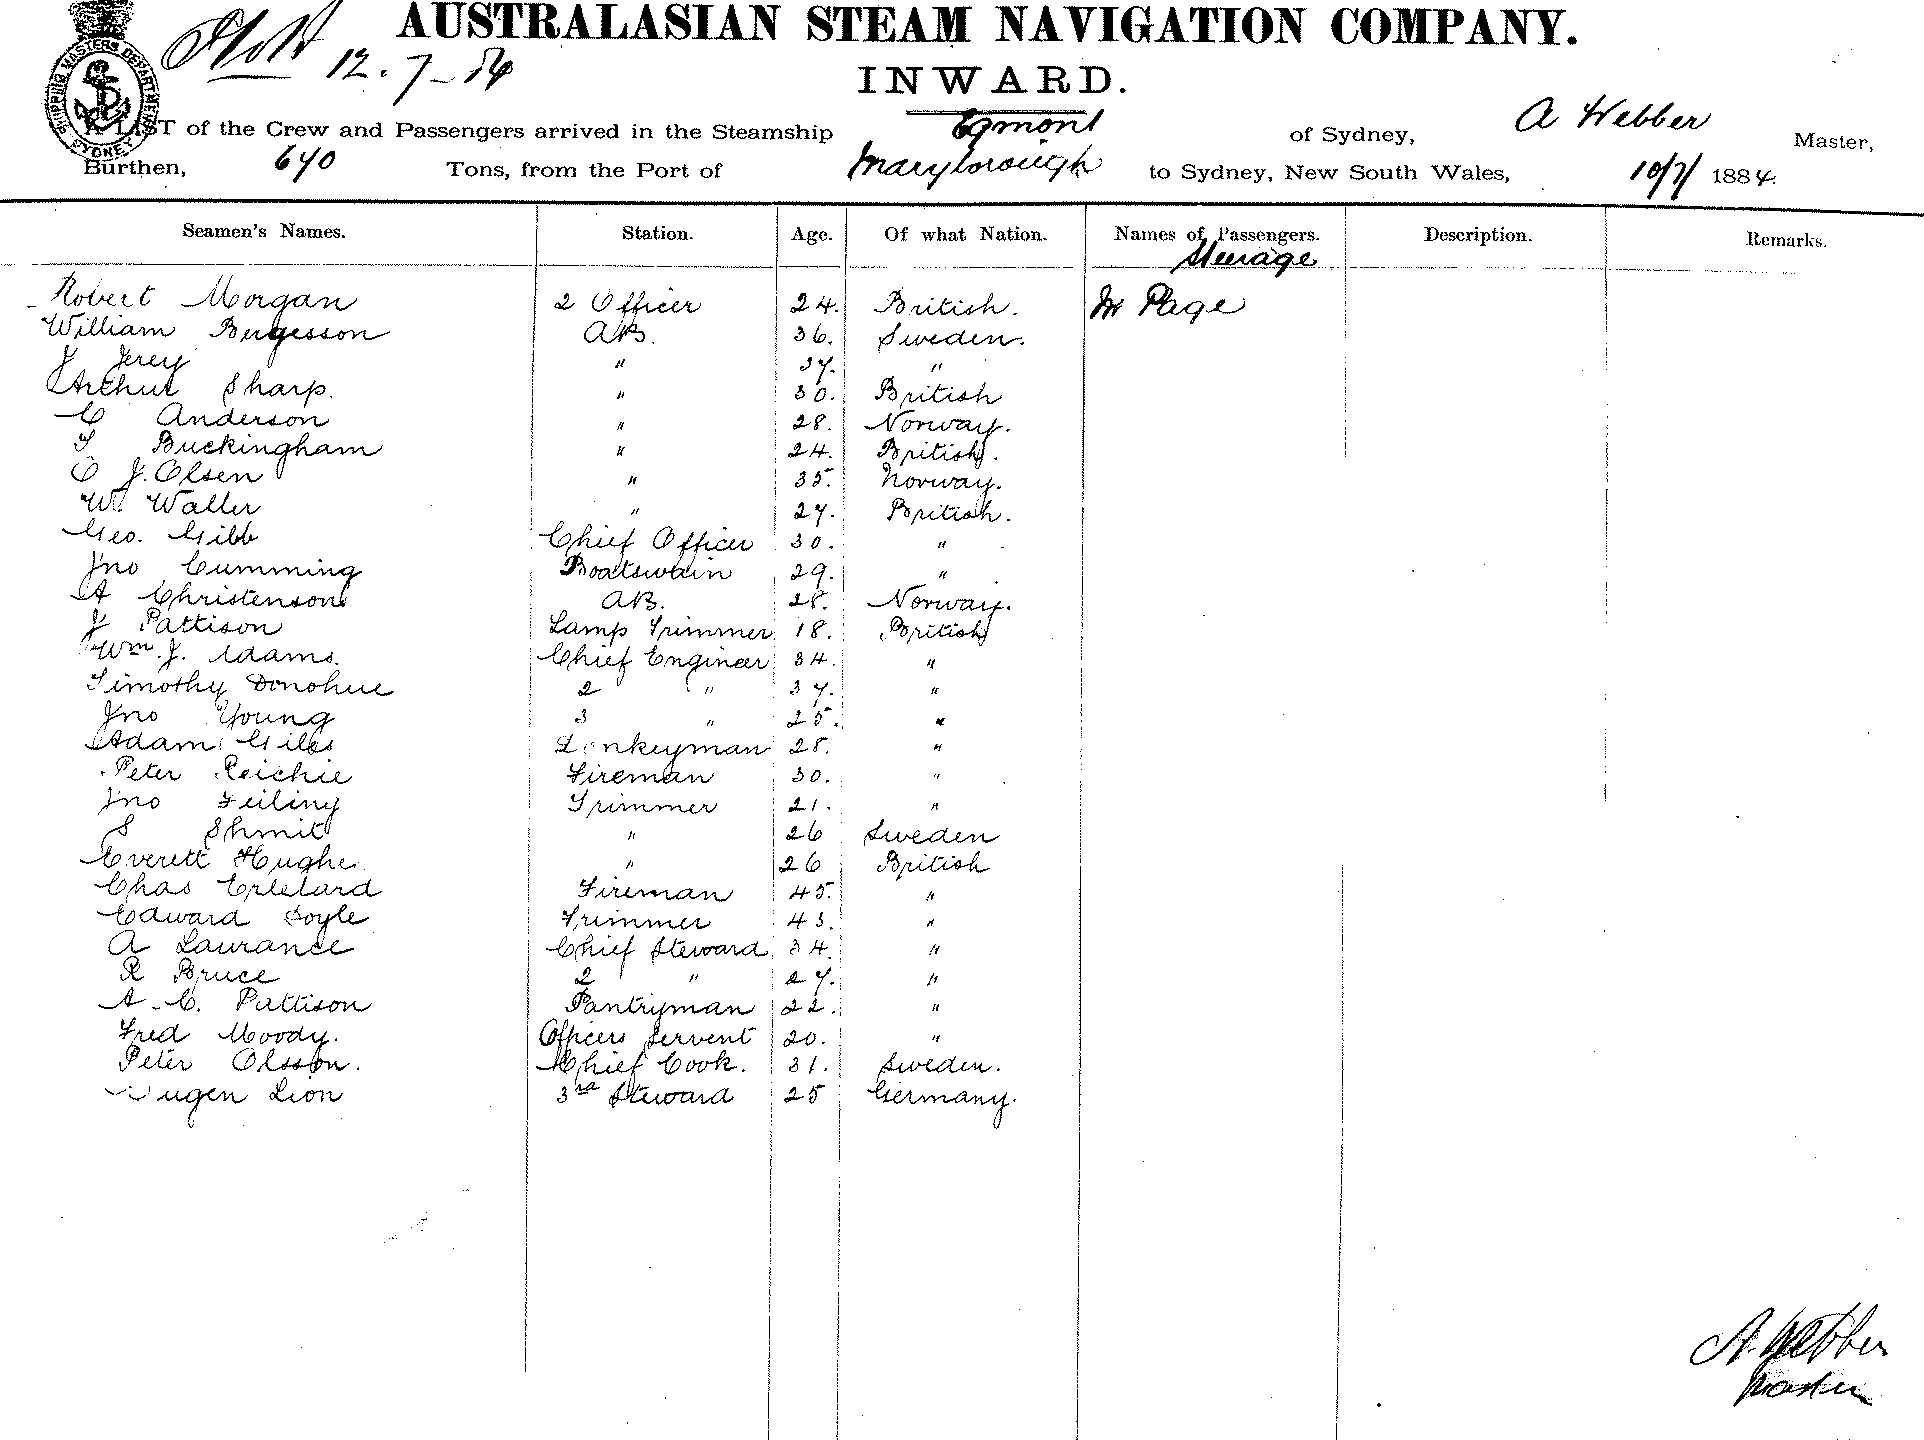 AUSTRALASIAN STEAM NAVIGATION COMPANY.
12.7-84
INWARD.
SHIPPING MASTERS DEPARTMENT SYDNEY
A LIST of the Crew and Passengers arrived in the Steamship Egmont of Sydney, A Webber Master,
Burthen, 640 Tons, from the Port of Maryborough to Sydney, New South Wales, 10/7/ 1884.
Seamen's Names. Station. Age. Of what Nation. Names of Passengers. Description. Remarks.
Steerage
Robert Morgan 2 Officer 24. British. Mr Page
William Burgesson AB. 36. Sweden.
J Jerey " 37. "
Arthur Sharp. " 30. British
C Anderson " 28. Norway.
T Buckingham " 24. British.
C J. Olsen " 35. Norway.
W. Waller " 27. British.
Geo. Gibb Chief Officer 30. "
Jno Cumming Boatswain 29. "
A Christenson AB. 28. Norway.
J Pattison Lamp Trimmer 18. British
Wm. J. Adams. Chief Engineer 34. "
Timothy Donohue 2 " 37. "
Jno Young 3 " 25. "
Adam Giles Donkeyman 28. "
Peter Reichie Fireman 30. "
Jno Feiling Trimmer 21. "
S Shmit " 26 Sweden
Everett Hughe " 26 British
Chas Fireman 45. "
Edward Doyle Trimmer 43. "
A Laurance Chief Steward 34. "
R Bruce 2 " 27. "
A. C. Pattison Pantryman 22. "
Fred Moody. Officers Servent 20. "
Peter Olsson. Chief Cook. 31. Sweden.
Eugen Lion 3rd Steward 25 Germany.
A. Webber
Master